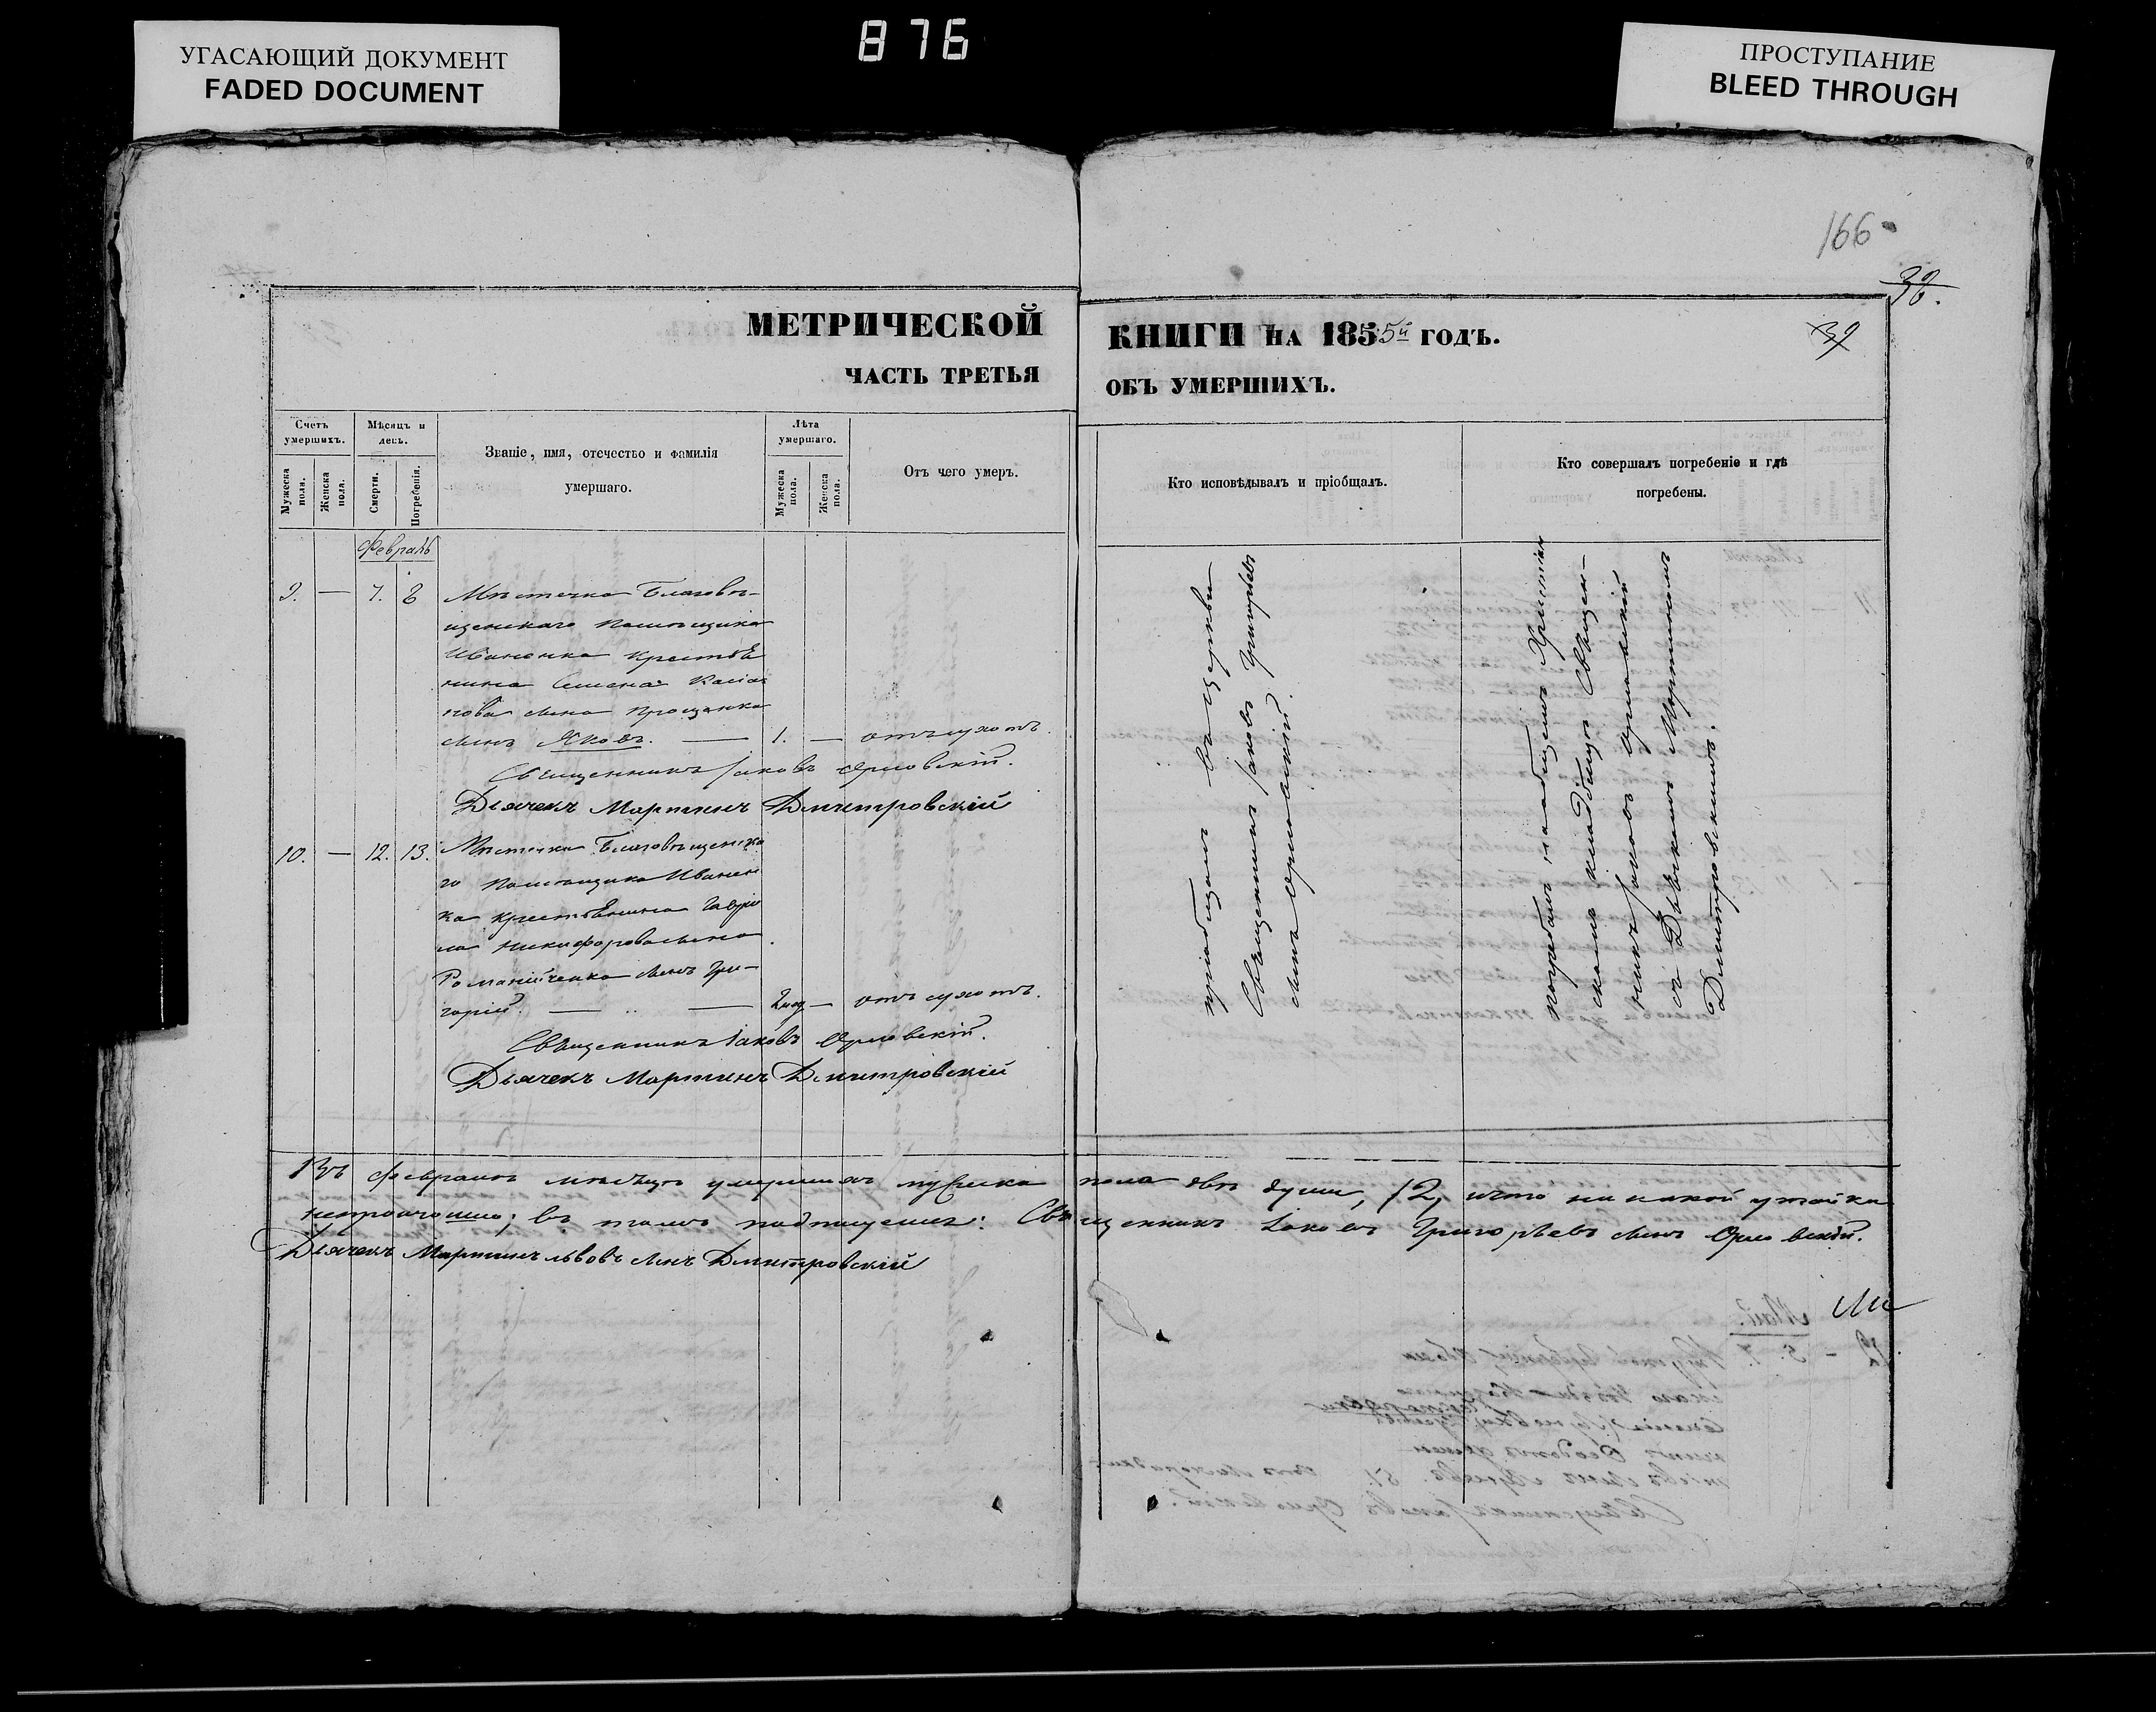 876
УГАСАЮЩИЙ ДОКУМЕНТ
FADED DOCUMENT
ПРОСТУПАНИЕ
BLEED THROUGH
166
38.
39
МЕТРИЧЕСКОЙ КНИГИ НА 1855й ГОДЪ.
ЧАСТЬ ТРЕТЬЯ ОБЪ УМЕРШИХЪ.
Счетъ умершихъ.
Мужеска пола.
Женска пола.
Мѣсяцъ и день.
Смерти.
Погребенія.
Званіе, имя, отечество и фамилія умершаго.
Лѣта умершаго.
Мужеска пола.
Женска пола.
Отъ чего умеръ.
Кто исповѣдывалъ и пріобщалъ.
Кто совершалъ погребеніе и гдѣ погребены.
Февраль
9. — 7. 8 Мѣстечка Благовѣ-
щенскаго помѣщика
Иваненка крестья
нина Семена Касіа
нова сына Прощенка
сынъ Яковъ. — 1. — отъ сухотъ.
Священникъ Іаковъ Орловскій.
Дьячекъ Мартинъ Дмитровскій
10. — 12. 13. Мѣстечка Благовѣщенска
го помѣщика Иванен
ка крестьянина Гаври
ла Никифорова сына
Романійченка сынъ Гри-
горій. — — 2 мѣ — отъ сухотъ.
Священникъ Іаковъ Орловскій.
Дьячекъ Мартинъ Дмитровскій
пріобщалъ въ Церкви
Священникъ Іаковъ Григорьевъ
сынъ Орловскій.
погребалъ на общемъ Христіан
скомъ кладбищѣ Священ-
никъ Іаковъ Орловскій
съ Дьячкомъ Мартиномъ
Дмитровскимъ.
Въ Февралѣ мѣсяцѣ умершихъ мужеска пола двѣ души, /2/ что никакой утайки
непроизошло; въ томъ подписуемся: Священникъ Іаковъ Григорьевъ сынъ Орловскій.
Дьячекъ Мартинъ Львовъ сынъ Дмитровскій